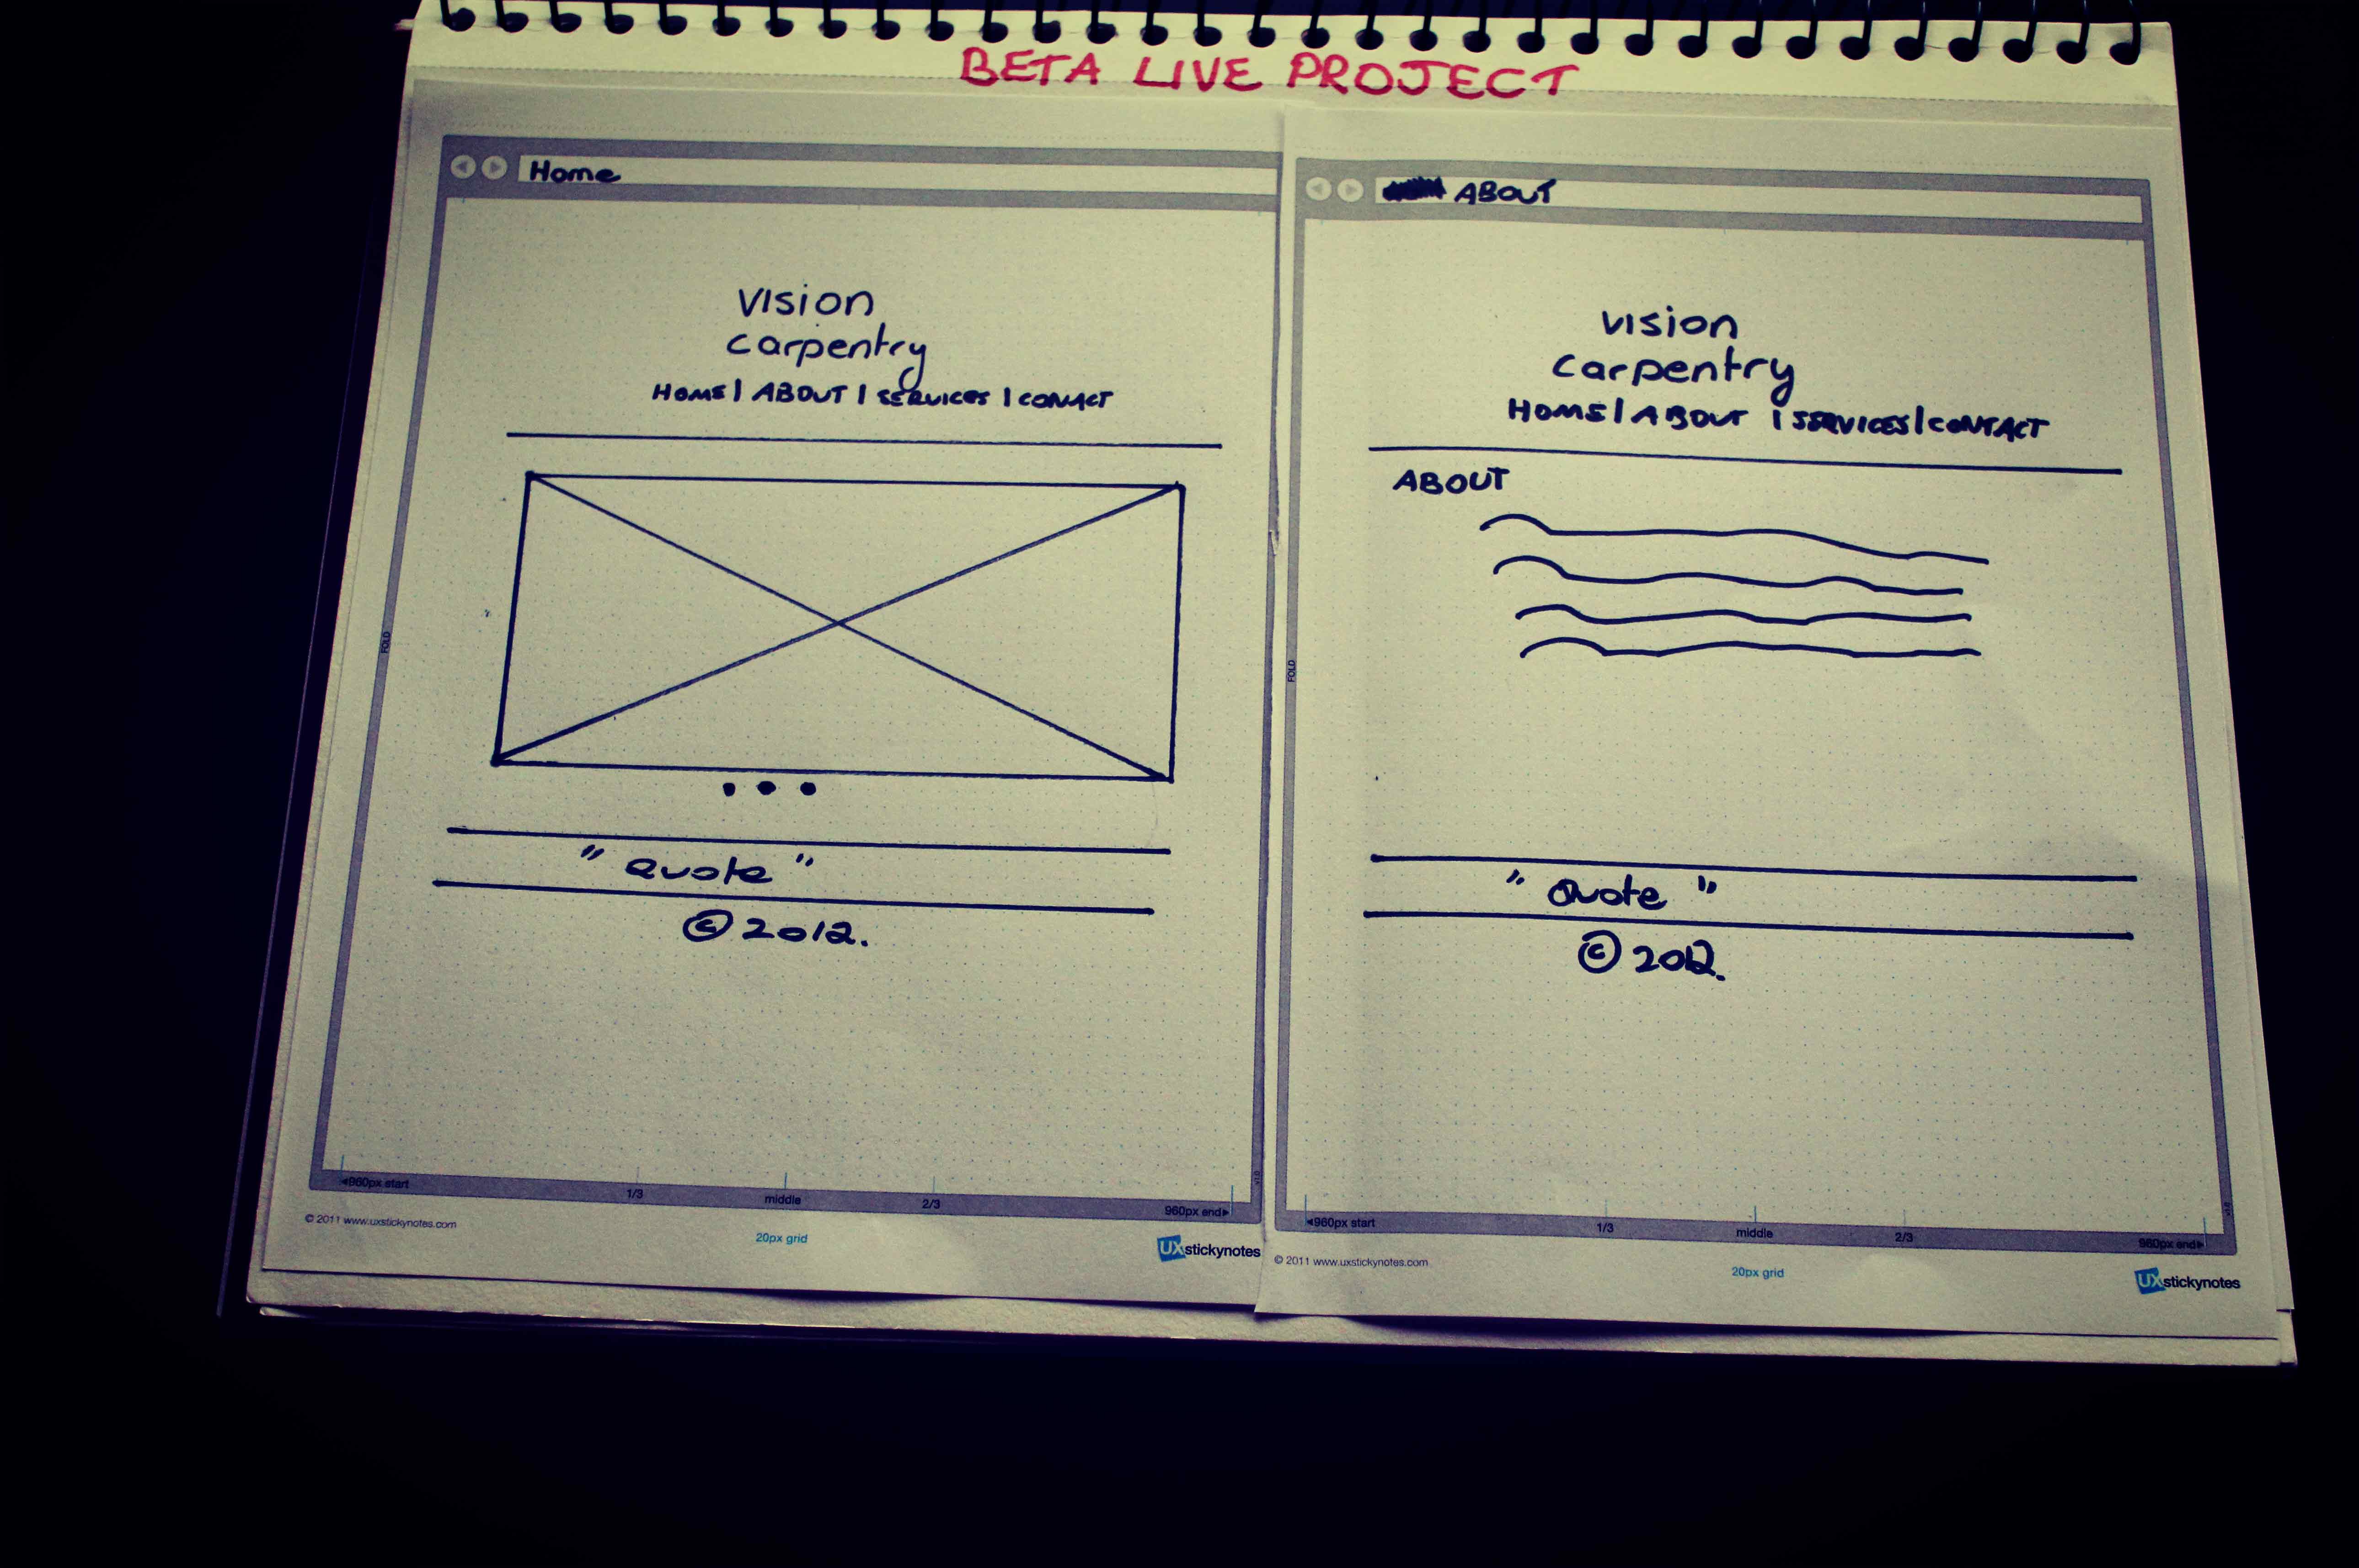 BETA LIVE PROJECT
Home
vision
carpentry
HOME | ABOUT | SERVICES | CONACT
" Quote "
© 2012.
FOLD
◄960px start
1/3
middle
2/3
960px end►
v1.0
© 2011 www.uxstickynotes.com
20px grid
UXstickynotes
ABOUT
vision
carpentry
HOME | ABOUT | SERVICES | CONTACT
ABOUT
" Quote "
© 2012.
FOLD
◄960px start
1/3
middle
2/3
960px end►
v1.0
© 2011 www.uxstickynotes.com
20px grid
UXstickynotes